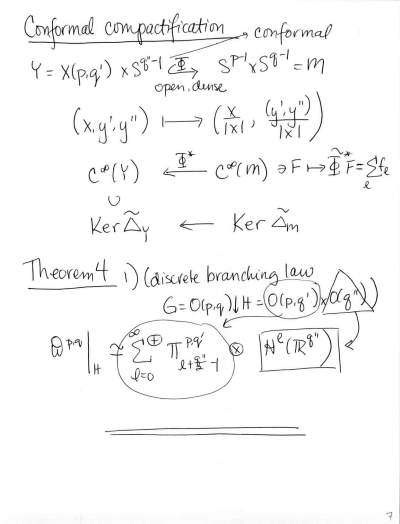 Conformal compactification → conformal
Y = X(p,q') × S^{q''-1} ↪^{Φ} S^{p-1} × S^{q-1} = M
open, dense
(x, y', y'') ⟼ (x/|x|, (y', y'')/|x|)
C^∞(Y) ⟵^{Φ*} C^∞(M) ∋ F ↦ Φ̃* F = Σ_ℓ f_ℓ
∪
Ker Δ̃_Y ← Ker Δ̃_M
Theorem 4 1) (discrete branching law
G = O(p,q) ↓ H = O(p,q') × O(q''))
ϖ^{p,q}|_H ≃ Σ^⊕_{ℓ=0}^∞ π^{p,q'}_{ℓ+q''/2-1} ⊗ H^ℓ(ℝ^{q''})
7